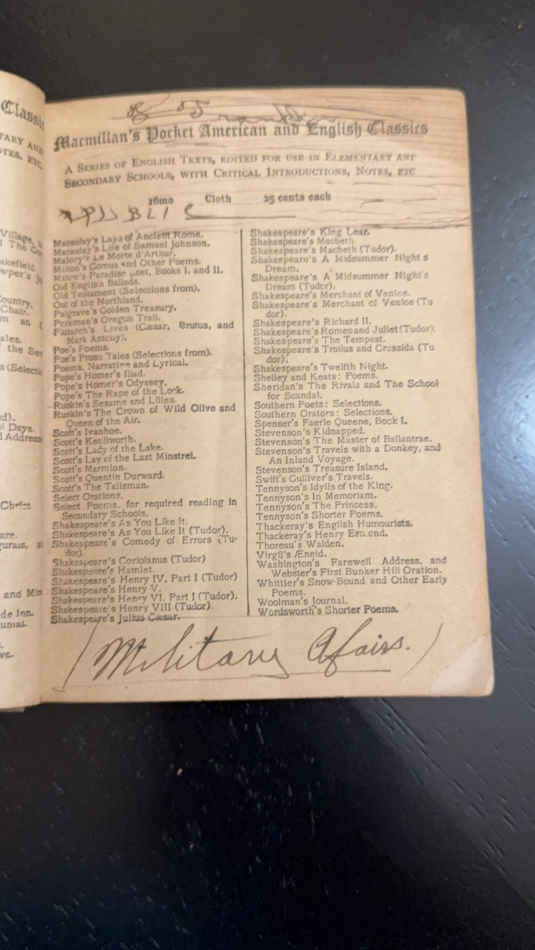 Classi
TARY AND
OTES, ETC.
Village,
akefield.
Country,
Chair.
ales.
the Ser
(Selecti
d).
Days.
Address
Christ
are.
and Min
de Inn.
Macmillan's Pocket American and English Classics
A Series of English Texts, edited for use in Elementary and
Secondary Schools, with Critical Introductions, Notes, etc
16mo Cloth 25 cents each
Macaulay's Lays of Ancient Rome.
Macaulay's Life of Samuel Johnson.
Malory's Le Morte d'Arthur.
Milton's Comus and Other Poems.
Milton's Paradise Lost, Books I. and II.
Old English Ballads.
Old Testament (Selections from).
Out of the Northland.
Palgrave's Golden Treasury.
Parkman's Oregon Trail.
Plutarch's Lives (Cæsar, Brutus, and
Mark Antony).
Poe's Poems.
Poe's Prose Tales (Selections from).
Poems, Narrative and Lyrical.
Pope's Homer's Iliad.
Pope's Homer's Odyssey.
Pope's The Rape of the Lock.
Ruskin's Sesame and Lilies.
Ruskin's The Crown of Wild Olive and
Queen of the Air.
Scott's Ivanhoe.
Scott's Kenilworth.
Scott's Lady of the Lake.
Scott's Lay of the Last Minstrel.
Scott's Marmion.
Scott's Quentin Durward.
Scott's The Talisman.
Select Orations.
Select Poems, for required reading in
Secondary Schools.
Shakespeare's As You Like It.
Shakespeare's As You Like It (Tudor).
Shakespeare's Comedy of Errors (Tu-
dor).
Shakespeare's Coriolanus (Tudor)
Shakespeare's Hamlet.
Shakespeare's Henry IV, Part I (Tudor)
Shakespeare's Henry V.
Shakespeare's Henry VI, Part I (Tudor).
Shakespeare's Henry VIII (Tudor)
Shakespeare's Julius Cæsar.
Shakespeare's King Lear.
Shakespeare's Macbeth
Shakespeare's Macbeth (Tudor).
Shakespeare's A Midsummer Night's
Dream.
Shakespeare's A Midsummer Night's
Dream (Tudor).
Shakespeare's Merchant of Venice.
Shakespeare's Merchant of Venice (Tu
dor).
Shakespeare's Richard II.
Shakespeare's Romeo and Juliet (Tudor).
Shakespeare's The Tempest.
Shakespeare's Troilus and Cressida (Tu
dor).
Shakespeare's Twelfth Night.
Shelley and Keats: Poems.
Sheridan's The Rivals and The School
for Scandal.
Southern Poets: Selections.
Southern Orators: Selections.
Spenser's Faerie Queene, Book I.
Stevenson's Kidnapped.
Stevenson's The Master of Ballantrae.
Stevenson's Travels with a Donkey, and
An Inland Voyage.
Stevenson's Treasure Island.
Swift's Gulliver's Travels.
Tennyson's Idylls of the King.
Tennyson's In Memoriam.
Tennyson's The Princess.
Tennyson's Shorter Poems.
Thackeray's English Humourists.
Thackeray's Henry Esmond.
Thoreau's Walden.
Virgil's Æneid.
Washington's Farewell Address, and
Webster's First Bunker Hill Oration.
Whittier's Snow-Bound and Other Early
Poems.
Woolman's Journal.
Wordsworth's Shorter Poems.
(Military Afairs.)